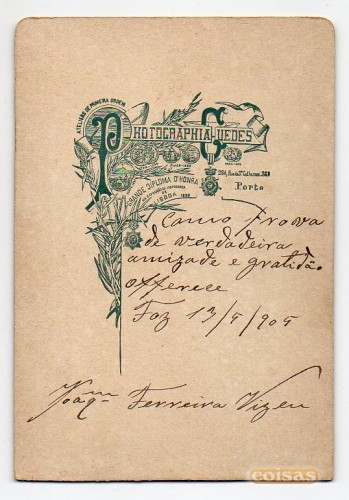 ATELIERS DE PRIMEIRA ORDEM
PHOTOGRAPHIA GUEDES
GRANDE DIPLOMA D'HONRA
LISBOA
Porto
Como prova
de verdadeira
amizade e gratidão
offerece
Foz 13/5/905
Joaqm Ferreira Vizeu
coisas